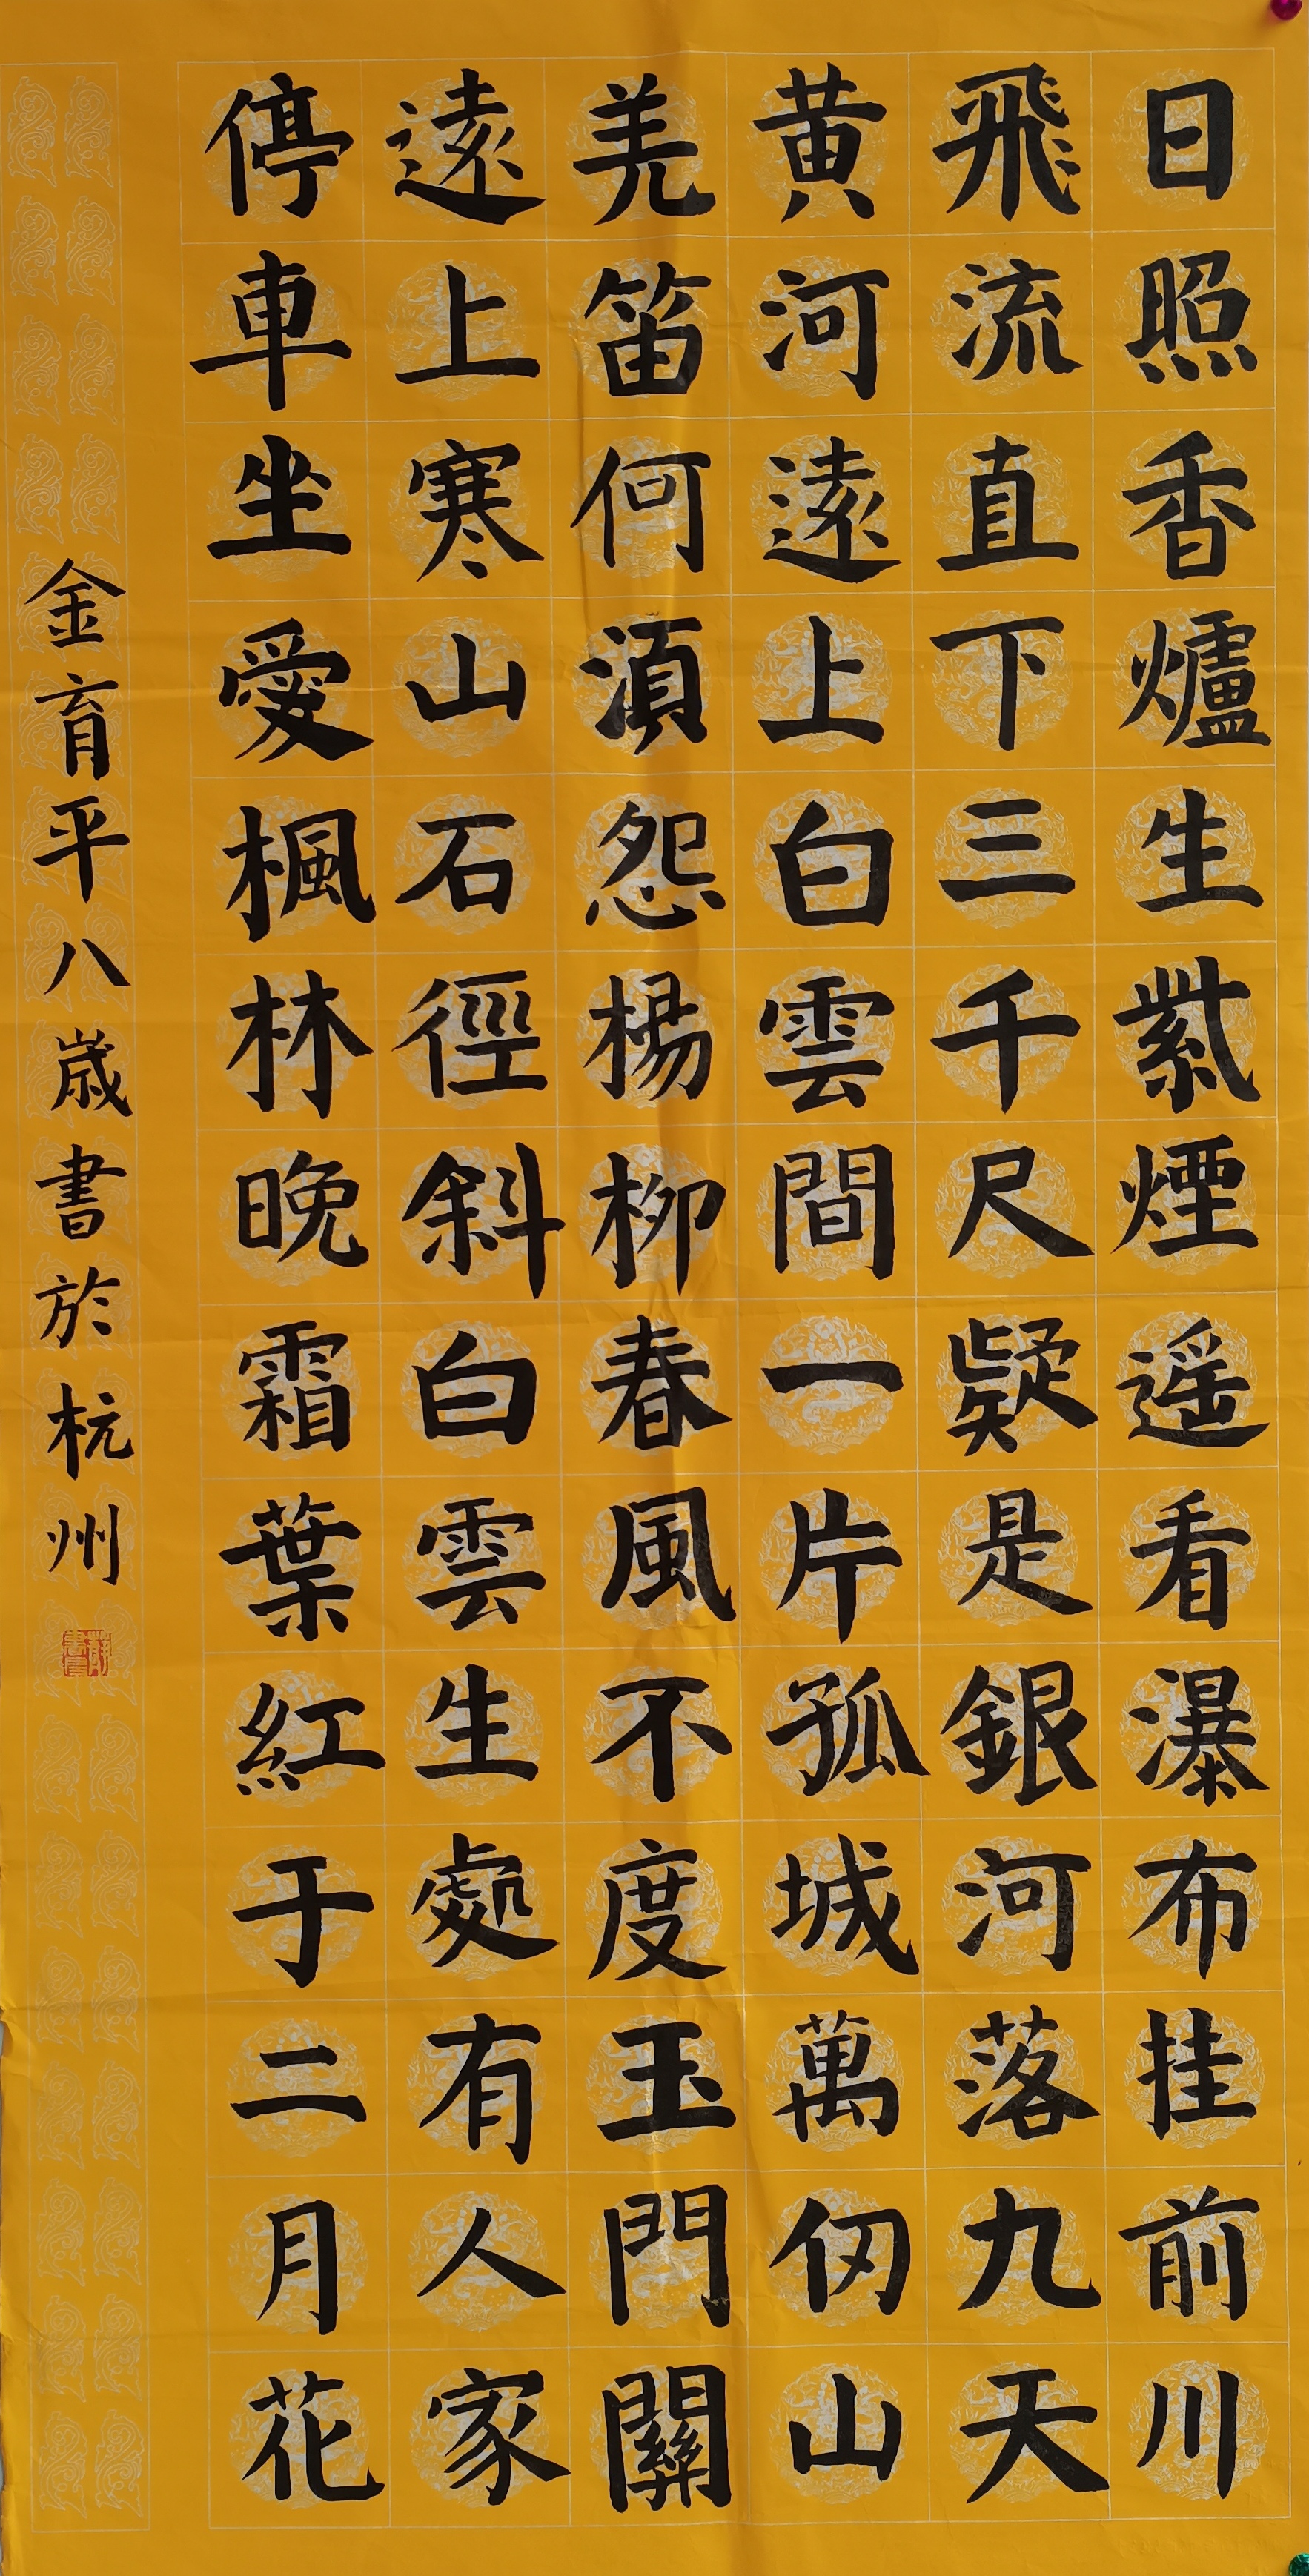 日照香爐生紫煙遥看瀑布挂前川
飛流直下三千尺疑是銀河落九天
黄河遠上白雲間一片孤城萬仞山
羌笛何須怨楊柳春風不度玉門關
遠上寒山石徑斜白雲生處有人家
停車坐愛楓林晚霜葉紅于二月花
金育平八歲書於杭州